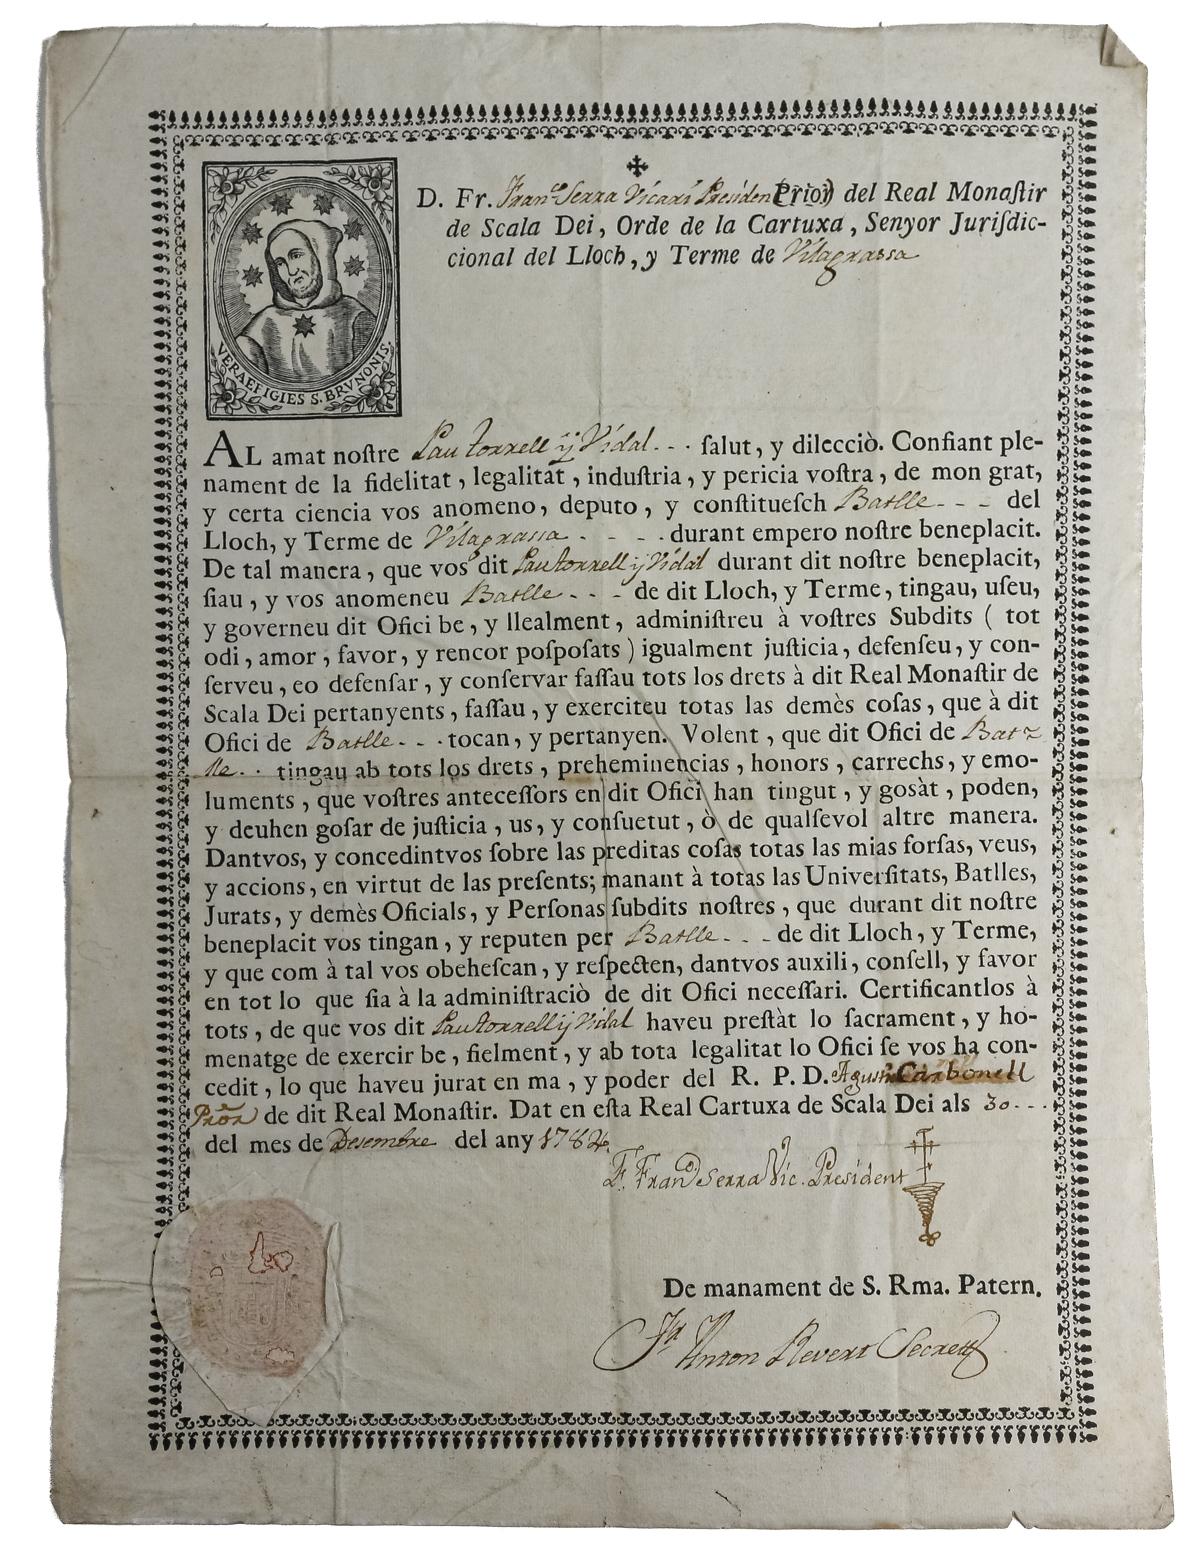 ✠
D. Fr. Franco. Serra Vicari Presiden (Prior) del Real Monaſtir
de Scala Dei, Orde de la Cartuxa, Senyor Juriſdic-
cional del Lloch, y Terme de Vilagrassa
VERAEFIGIES S. BRVNONIS.
AL amat noſtre Pau torrell ÿ Vidal - - - ſalut, y dilecciò. Confiant ple-
nament de la fidelitat, legalitat, induſtria, y pericia voſtra, de mon grat,
y certa ciencia vos anomeno, deputo, y conſtitueſch Batlle - - - del
Lloch, y Terme de Vilagrassa - - - - durant empero noſtre beneplacit.
De tal manera, que vos dit Pau torrell ÿ Vidal durant dit noſtre beneplacit,
ſiau, y vos anomeneu Batlle - - - de dit Lloch, y Terme, tingau, uſeu,
y governeu dit Ofici be, y llealment, adminiſtreu à voſtres Subdits ( tot
odi, amor, favor, y rencor poſpoſats ) igualment juſticia, defenſeu, y con-
ſerveu, eo defenſar, y conſervar faſſau tots los drets à dit Real Monaſtir de
Scala Dei pertanyents, faſſau, y exerciteu totas las demès coſas, que à dit
Ofici de Batlle - - - tocan, y pertanyen. Volent, que dit Ofici de Bat-
lle - - tingau ab tots los drets, preheminencias, honors, carrechs, y emo-
luments, que voſtres anteceſſors en dit Ofici han tingut, y gosàt, poden,
y deuhen goſar de juſticia, us, y conſuetut, ò de qualſevol altre manera.
Dantvos, y concedintvos ſobre las preditas coſas totas las mias forſas, veus,
y accions, en virtut de las preſents; manant à totas las Univerſitats, Batlles,
Jurats, y demès Oficials, y Perſonas ſubdits noſtres, que durant dit noſtre
beneplacit vos tingan, y reputen per Batlle - - - de dit Lloch, y Terme,
y que com à tal vos obeheſcan, y reſpecten, dantvos auxili, conſell, y favor
en tot lo que ſia à la adminiſtraciò de dit Ofici neceſſari. Certificantlos à
tots, de que vos dit Pau torrell ÿ Vidal haveu preſtàt lo ſacrament, y ho-
menatge de exercir be, fielment, y ab tota legalitat lo Ofici ſe vos ha con-
cedit, lo que haveu jurat en ma, y poder del R. P. D. Agusti Carbonell
Prõr de dit Real Monaſtir. Dat en eſta Real Cartuxa de Scala Dei als 30 - - -
del mes de Desembre del any 1784.
F. Franco Serra Vic. President
De manament de S. Rma. Patern.
Anton Revert Secret